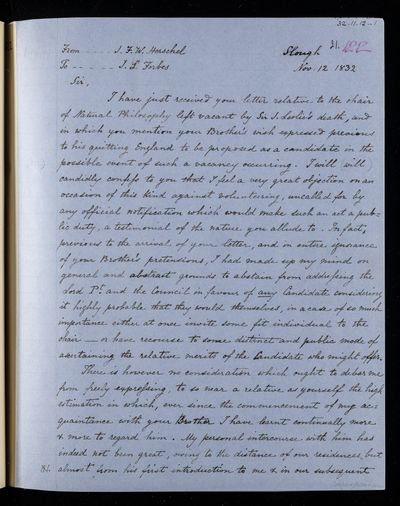 32-11-12-1
From J. F. W. Herschel Slough
To J. D. Forbes Nov. 12 1832
Sir,
I have just received your letter relative to the chair
of Natural Philosophy left vacant by Sir J. Leslie's death, and
in which you mention your Brother's wish expressed previous
to his quitting England to be proposed as a candidate in the
possible event of such a vacancy occurring. I will
candidly confess to you that I feel a very great objection on an
occasion of this kind against volunteering, uncalled for by
any official notification which would make such an act a pub-
lic duty, a testimonial of the nature you allude to. In fact,
previous to the arrival of your letter, and in entire ignorance
of your Brother's pretensions, I had made up my mind on
general and abstract grounds to abstain from addressing the
Lord Pt. and the Council in favour of any Candidate considering
it highly probable that they would themselves, in a case of so much
importance either at once invite some fit individual to the
chair — or have recourse to some distinct and public mode of
ascertaining the relative merits of the Candidate who might offer.
There is however no consideration which ought to debar me
from freely expressing, to so near a relative as yourself the high
estimation in which, ever since the commencement of my ac-
quaintance with your Brother I have learnt continually more
& more to regard him. My personal intercourse with him has
indeed not been great, owing to the distance of our residences, but
almost from his first introduction to me & in our subsequent